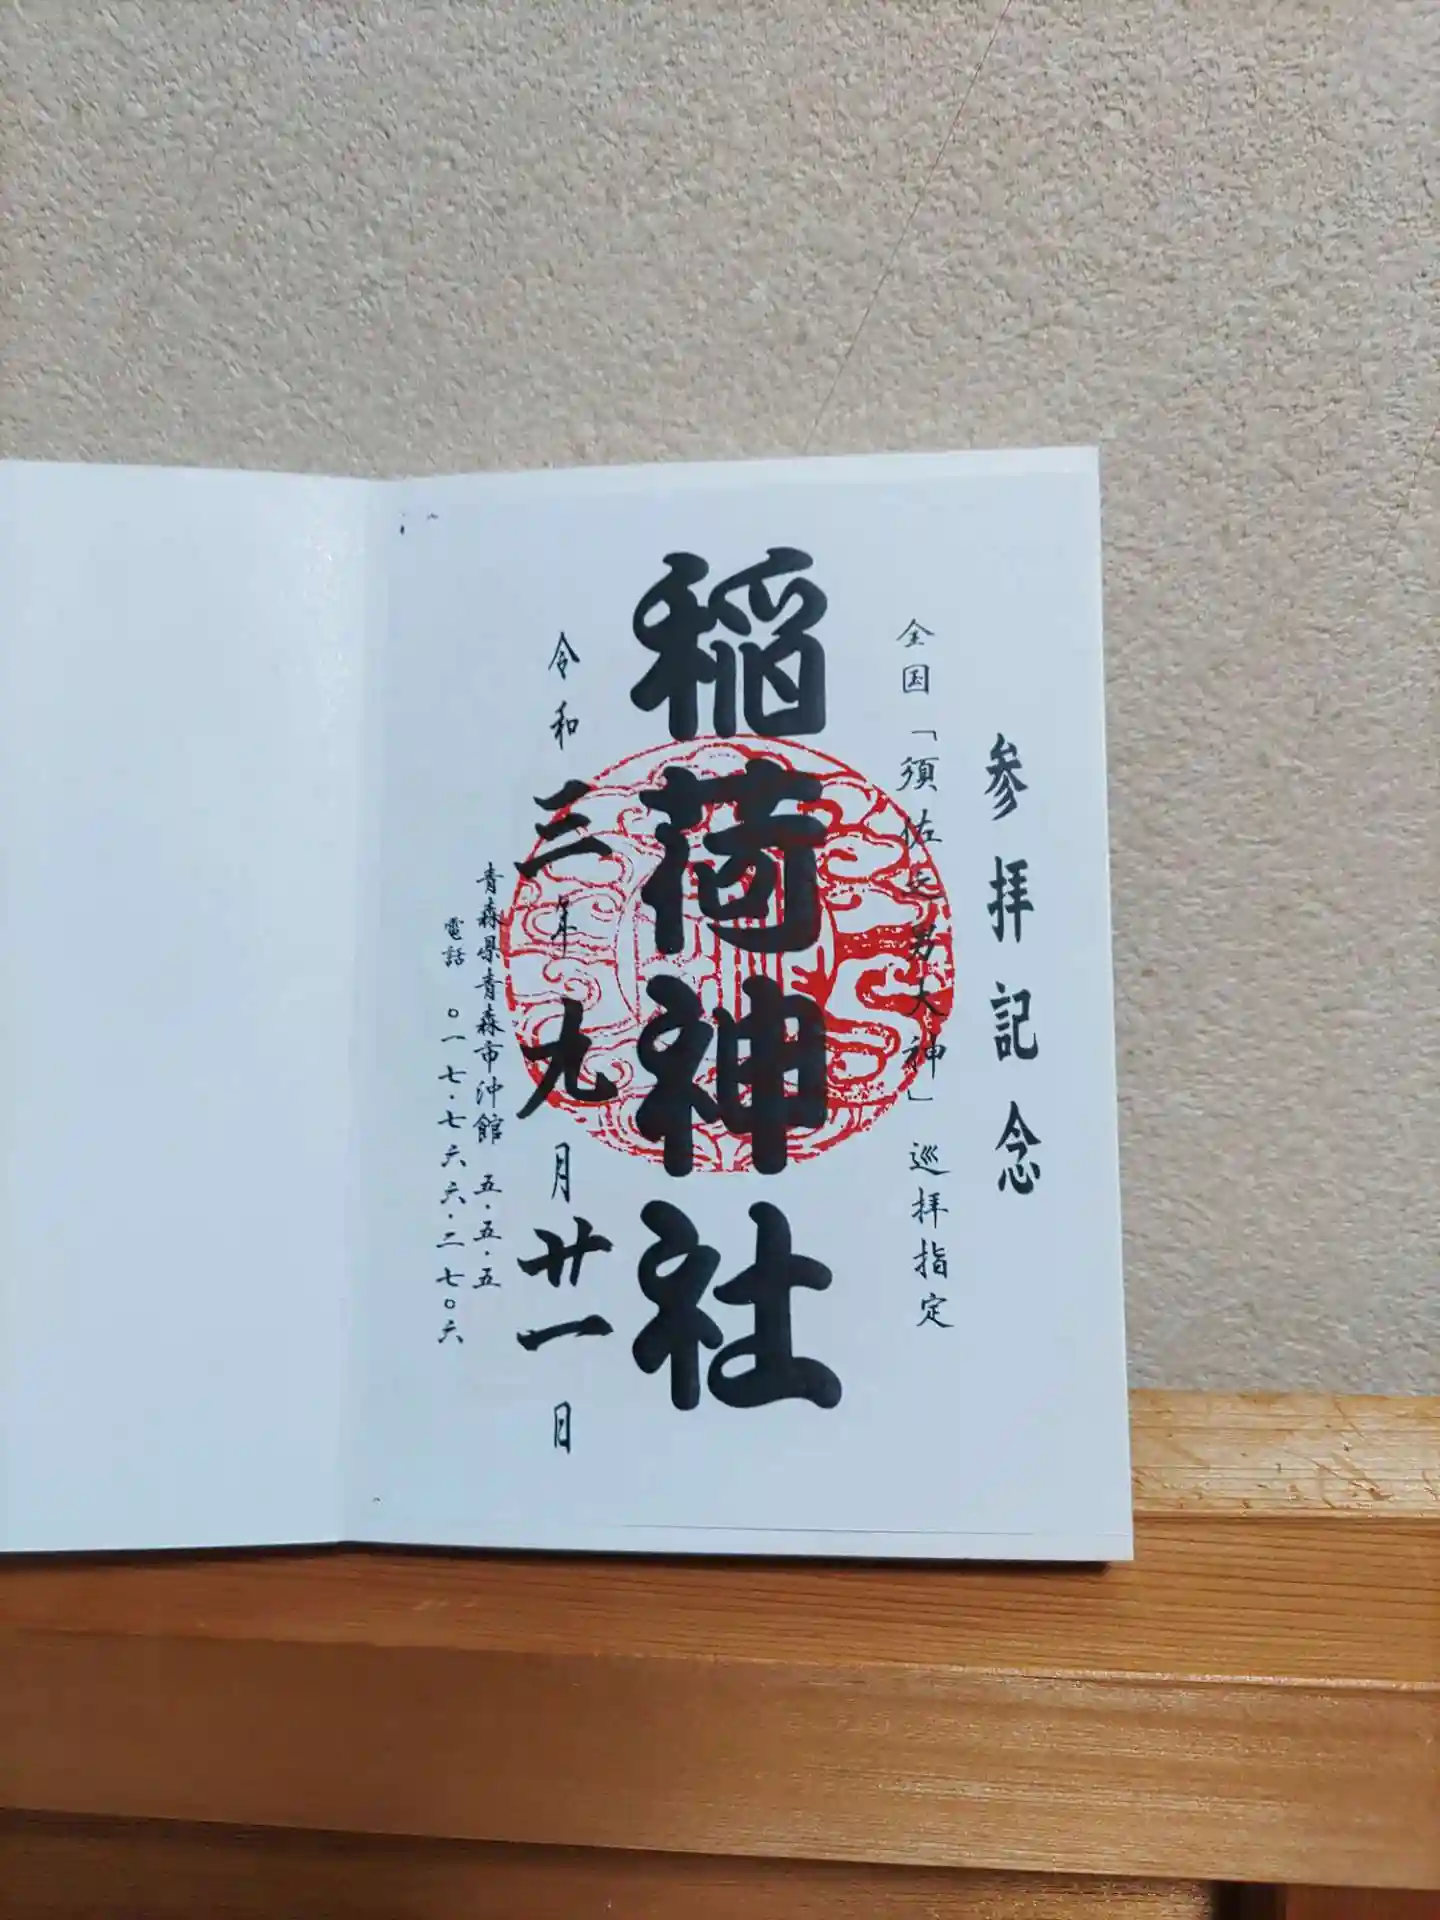 参拝記念
全国「須佐之男大神」巡拝指定
稲荷神社
令和三年九月廿一日
青森県青森市沖館 五・五・五
電話 〇一七・七六六・二七〇六